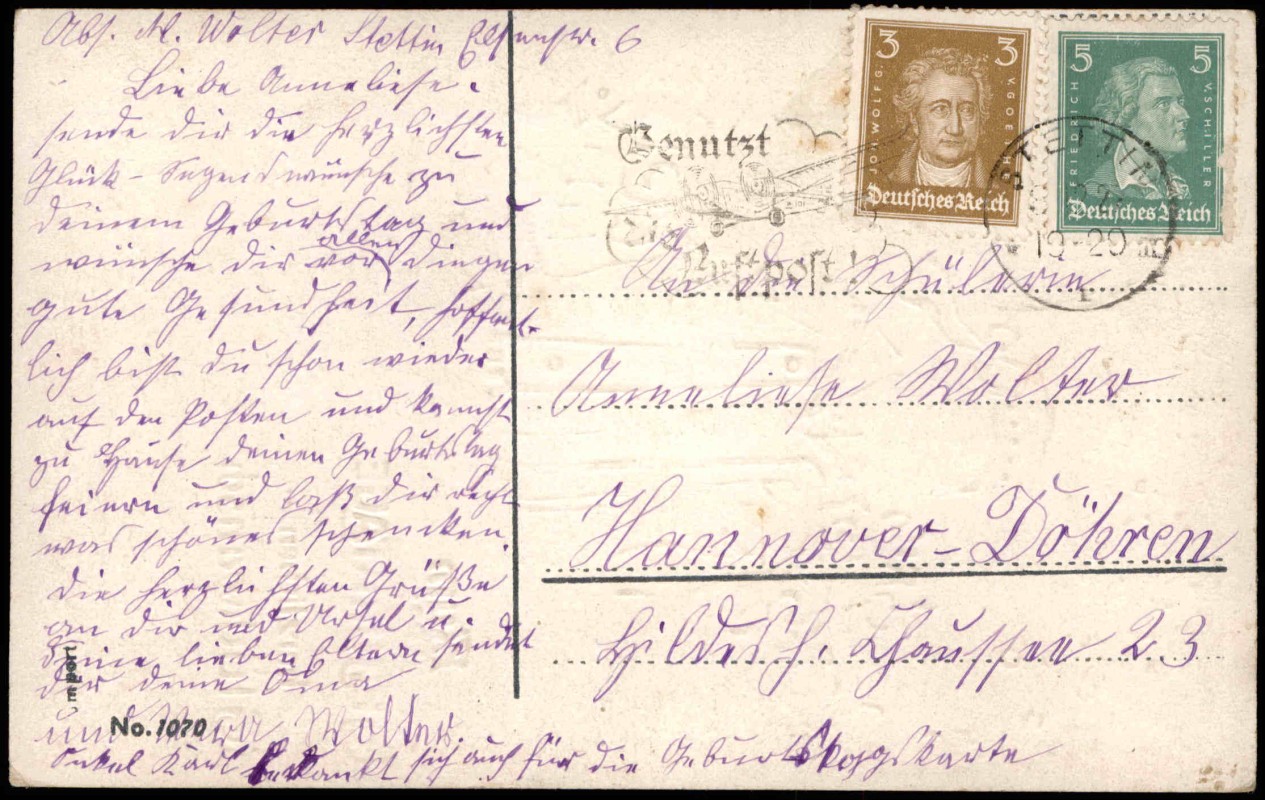 Abs. M. Wolter Stettin Elsenstr. 6
Liebe Anneliese.
sende dir die herzlichsten
Glück - Segenswünsche zu
deinem Geburtstag und
wünsche dir vor allen Dingen
gute Gesundheit, hoffent-
lich bist du schon wieder
auf den Posten und kannst
zu Hause deinen Geburtstag
feiern und laß dir recht
was schönes schencken.
die herzlichsten Grüße
an dir und Ursel u.
deine lieben Eltern sendet
dir deine Oma
und Wolter.
Onkel Karl bedankt sich auch für die Geburtstagskarte
No. 1070
Import
3 3
JOH. WOLFG. V GOETHE
Deutsches Reich
5 5
FRIEDRICH V SCHILLER
Deutsches Reich
Benutzt
Die
Luftpost!
STETTIN
19-20
1
An die Schülerin
Anneliese Wolter
Hannover-Döhren
Hildesh. Chaussee 23